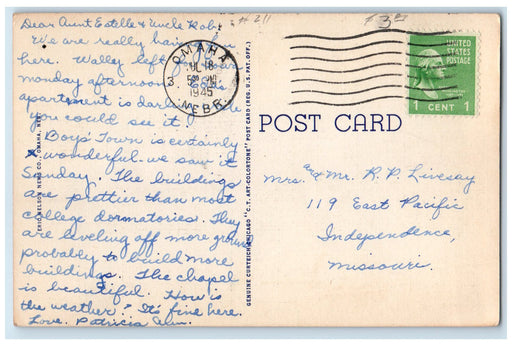 Dear Aunt Estelle & Uncle Rob:
We are really having fun
here. Wally left for town
monday afternoon.
apartment is darling.
you could see it.
Boys' Town is certainly
wonderful - we saw it
Sunday. The buildings
are prettier than most
college dormatories. They
are leveling off more ground
probably to build more
buildings. The chapel
is beautiful. How is
the weather? It's fine here.
Love. Patricia Ann.
# 211
$ 3.00
OMAHA
JUL 18
5 30 PM
1945
NEBR.
3
UNITED
STATES
POSTAGE
1 CENT 1
POST CARD
Mrs. and Mr. R. P. Livesay
119 East Pacific
Independence,
Missouri.
ERIC NELSON NEWS CO., OMAHA, NEB.
GENUINE CURTEICH-CHICAGO "C.T. ART-COLORTONE" POST CARD (REG. U.S. PAT. OFF.)